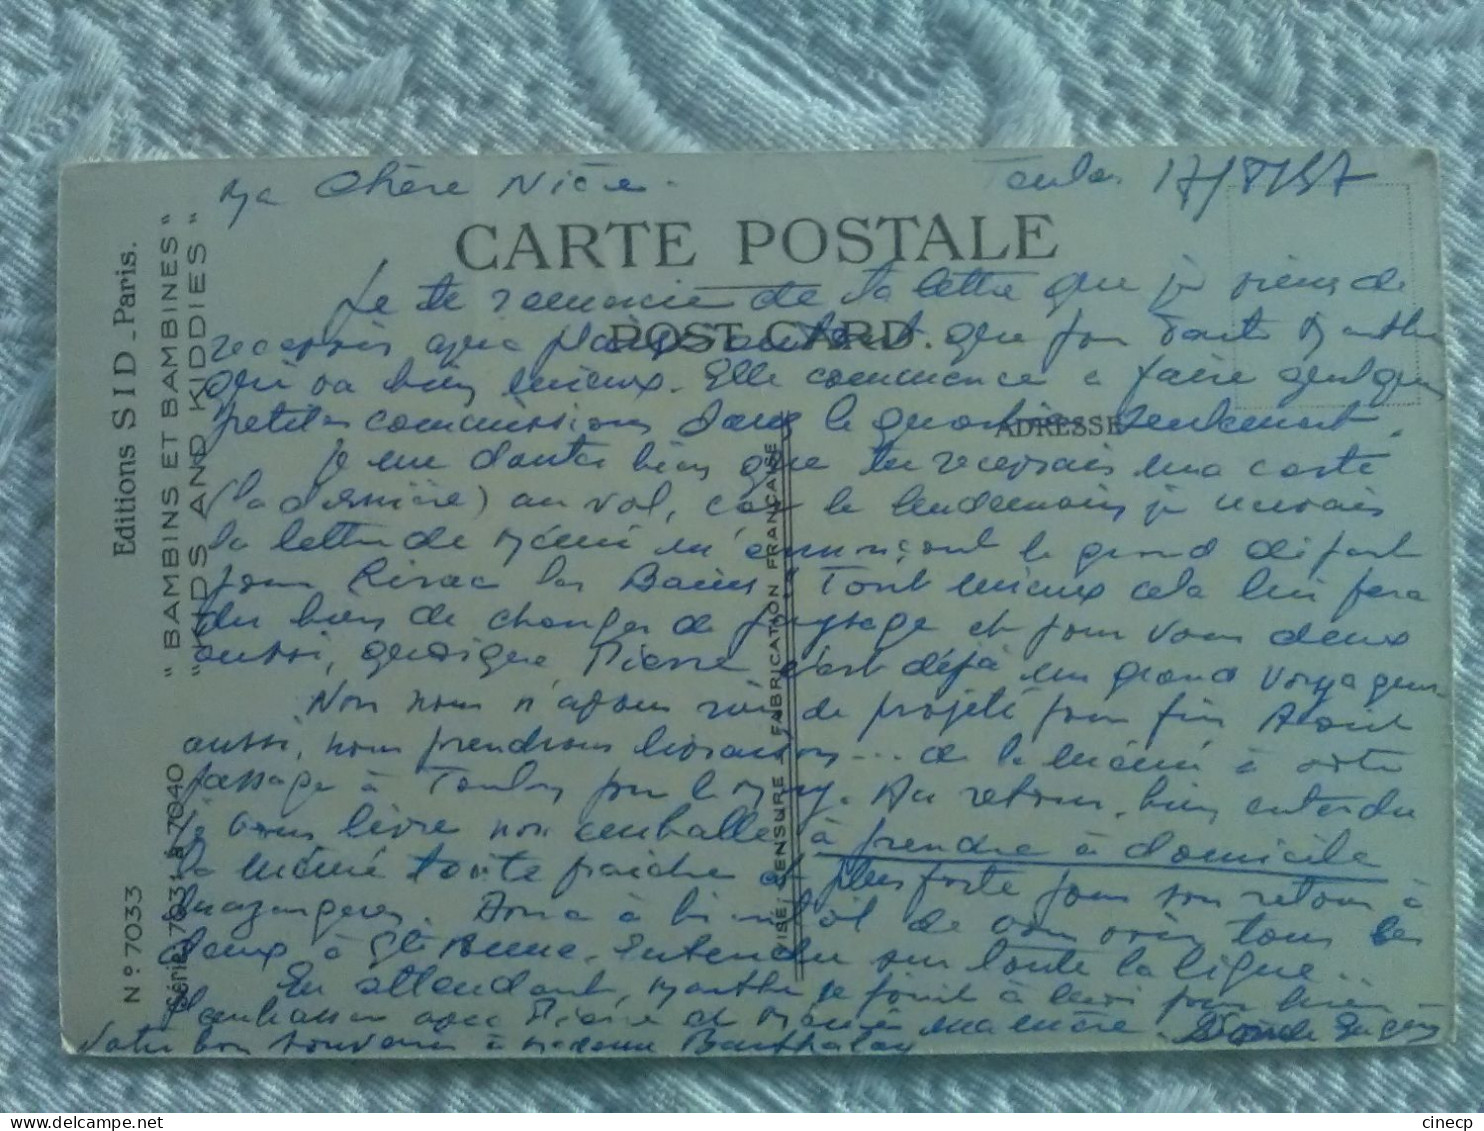 Ma Chère Nièce. Toulon 17/8/57
CARTE POSTALE
Je te remercie de ta lettre que je viens de
POST CARD.
recevoir ainsi que Tante Marthe
qui va bien mieux. Elle commence a faire quelques
petites commissions dans le quartier seulement.
ADRESSE
Je me doutais bien que tu recevrais ma carte
(la dernière) au vol, car le lendemain je recevais
la lettre de Mémé m'annonçant le grand départ
pour les Bains! Tant mieux cela lui fera
du bien de changer de paysage et pour vous deux
aussi, quoique Pierre c'est déjà un grand voyageur
Nous nous n'avons rien de projeté pour fin Aout
aussi, nous prendrons livraison... de la mémé à votre
passage à Toulon. Au retour, bien entendu
je vous livre non emballé, à prendre à domicile
la mémé toute fraiche et plus forte pour son retour à
Mazargues. Donc à bientôt de vous voir tous les
deux à Ste Anne. Entendu sur toute la ligne.
En attendant, Marthe se joint à moi pour bien
t'embrasser avec Pierre et Mémé
Notre bon souvenir à Madame Barthalay
Editions SID_Paris.
" BAMBINS ET BAMBINES "
" KIDS AND KIDDIES "
N° 7033
Série: 7031 à 7040
VISE, CENSURE - FABRICATION FRANÇAISE
cinecp